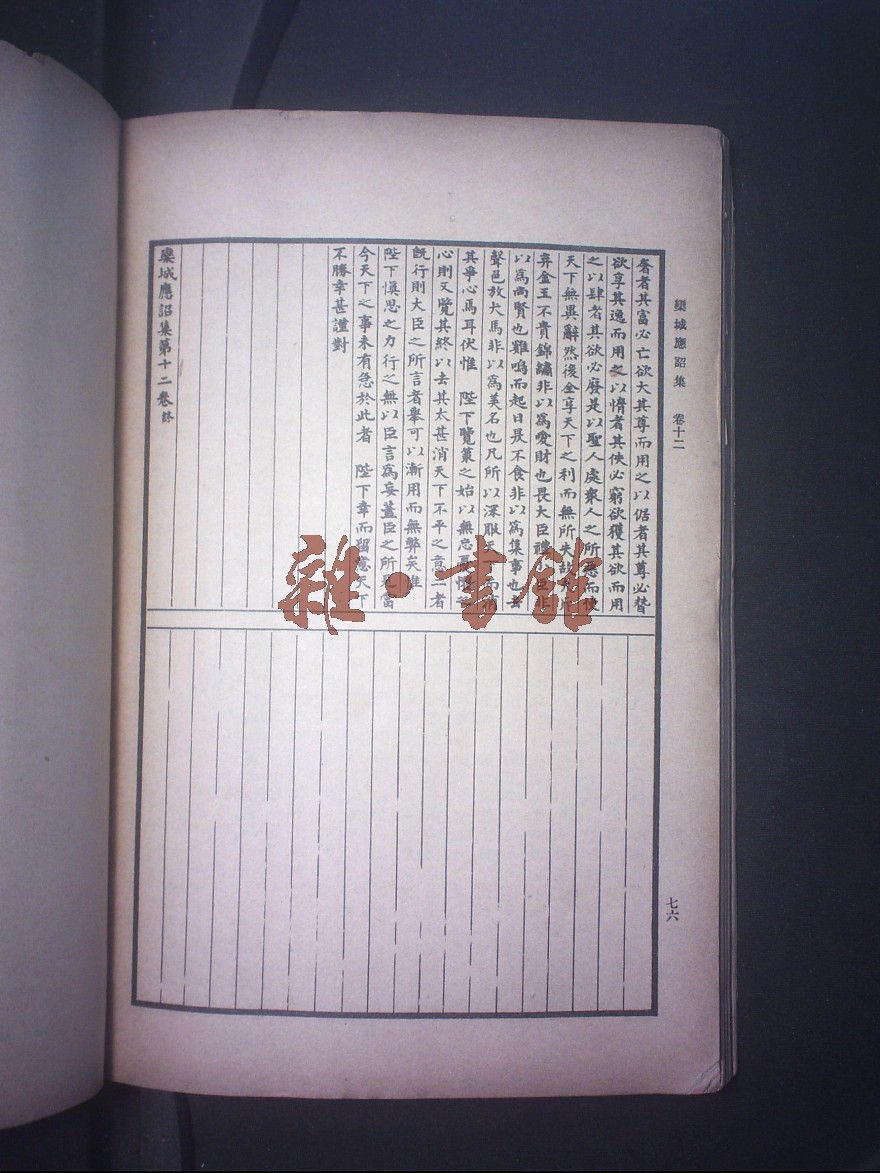 欒城應詔集 卷十二
奢者其富必亡欲大其尊而用之以倨者其尊必替
欲享其逸而用之以惰者其佚必窮欲穫其欲而用
之以肆者其欲必廢是以聖人處衆人之所惡而使
天下無異辭然後全享天下之利而無所失故
弃金玉不貴錦繡非以爲愛財也畏大臣禮 臣非
以爲尚賢也雞鳴而起日昃不食非以爲集事也去
聲色放犬馬非以爲美名也凡所以深服天下而消
其爭心焉耳伏惟 陛下覽策之始以無忘憂懼之
心則又覽其終以去其太甚消天下不平之意二者
旣行則大臣之所言者舉可以漸用而無弊矣惟
陛下愼思之力行之無以臣言爲妄蓋臣之所見當
今天下之事未有急於此者 陛下幸而留意天下
不勝幸甚謹對
欒城應詔集第十二卷終
七六
雜·書館